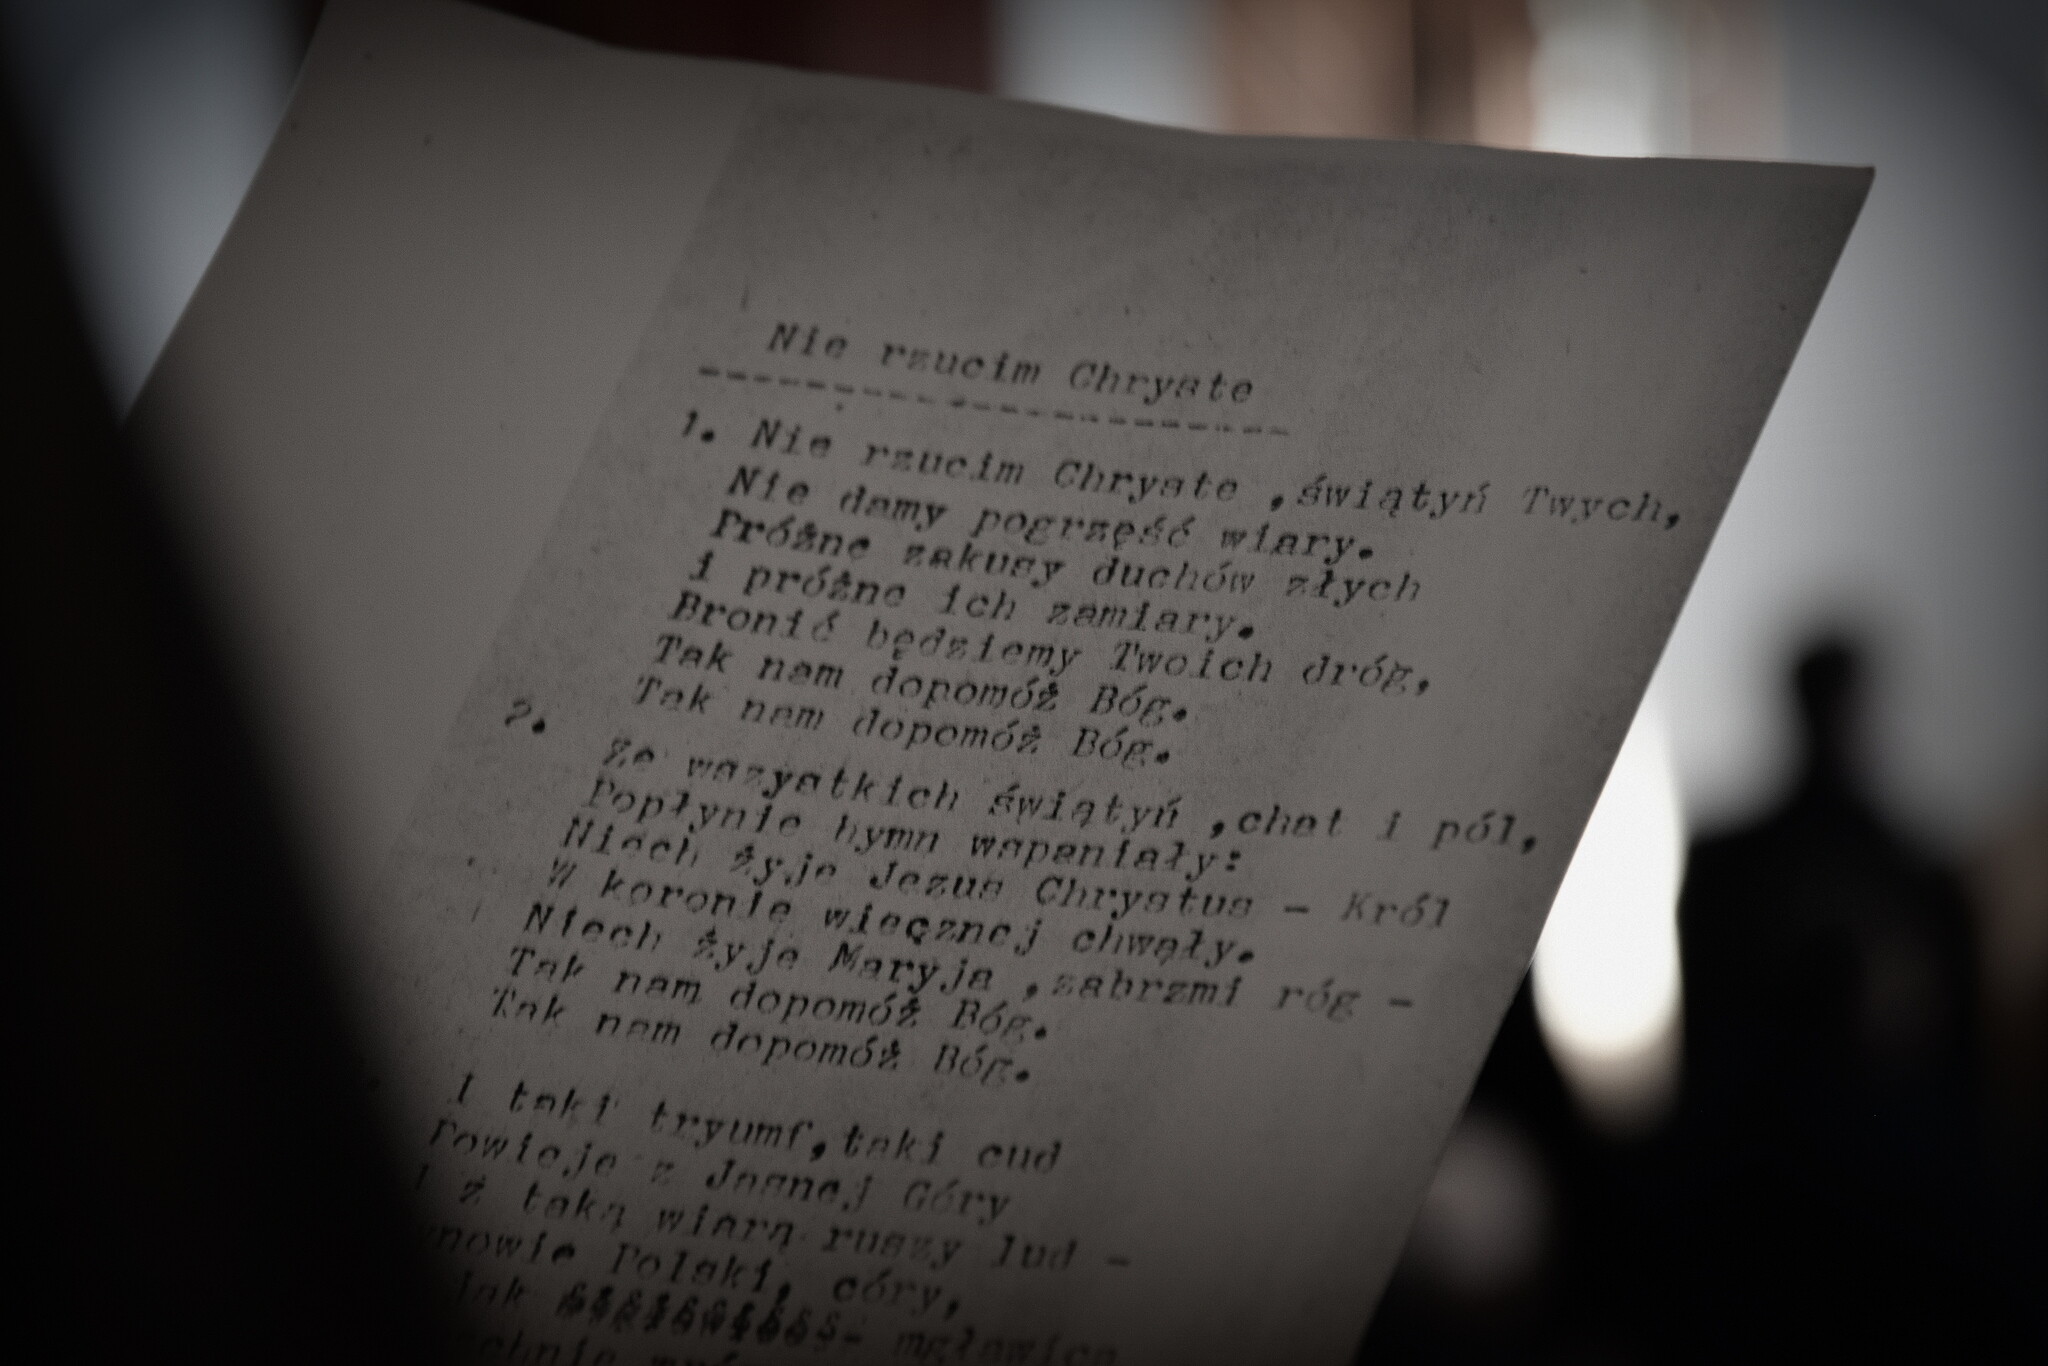 Nie rzucim Chryste
---------------------
1. Nie rzucim Chryste ,świątyń Twych,
Nie damy pogrzęść wiary.
Próżne zakusy duchów złych
i próżne ich zamiary.
Bronić będziemy Twoich dróg,
Tak nam dopomóż Bóg.
Tak nam dopomóż Bóg.
2.
Ze wszystkich świątyń ,chat i pól,
Popłynie hymn wspaniały:
Niech żyje Jezus Chrystus - Król
W koronie wiecznej chwały.
Niech żyje Maryja ,zabrzmi róg -
Tak nam dopomóż Bóg.
Tak nam dopomóż Bóg.
I taki tryumf,taki cud
Powieje z Jasnej Góry
I z taką wiarą ruszy lud -
Polski, córy,
Jak mgławica